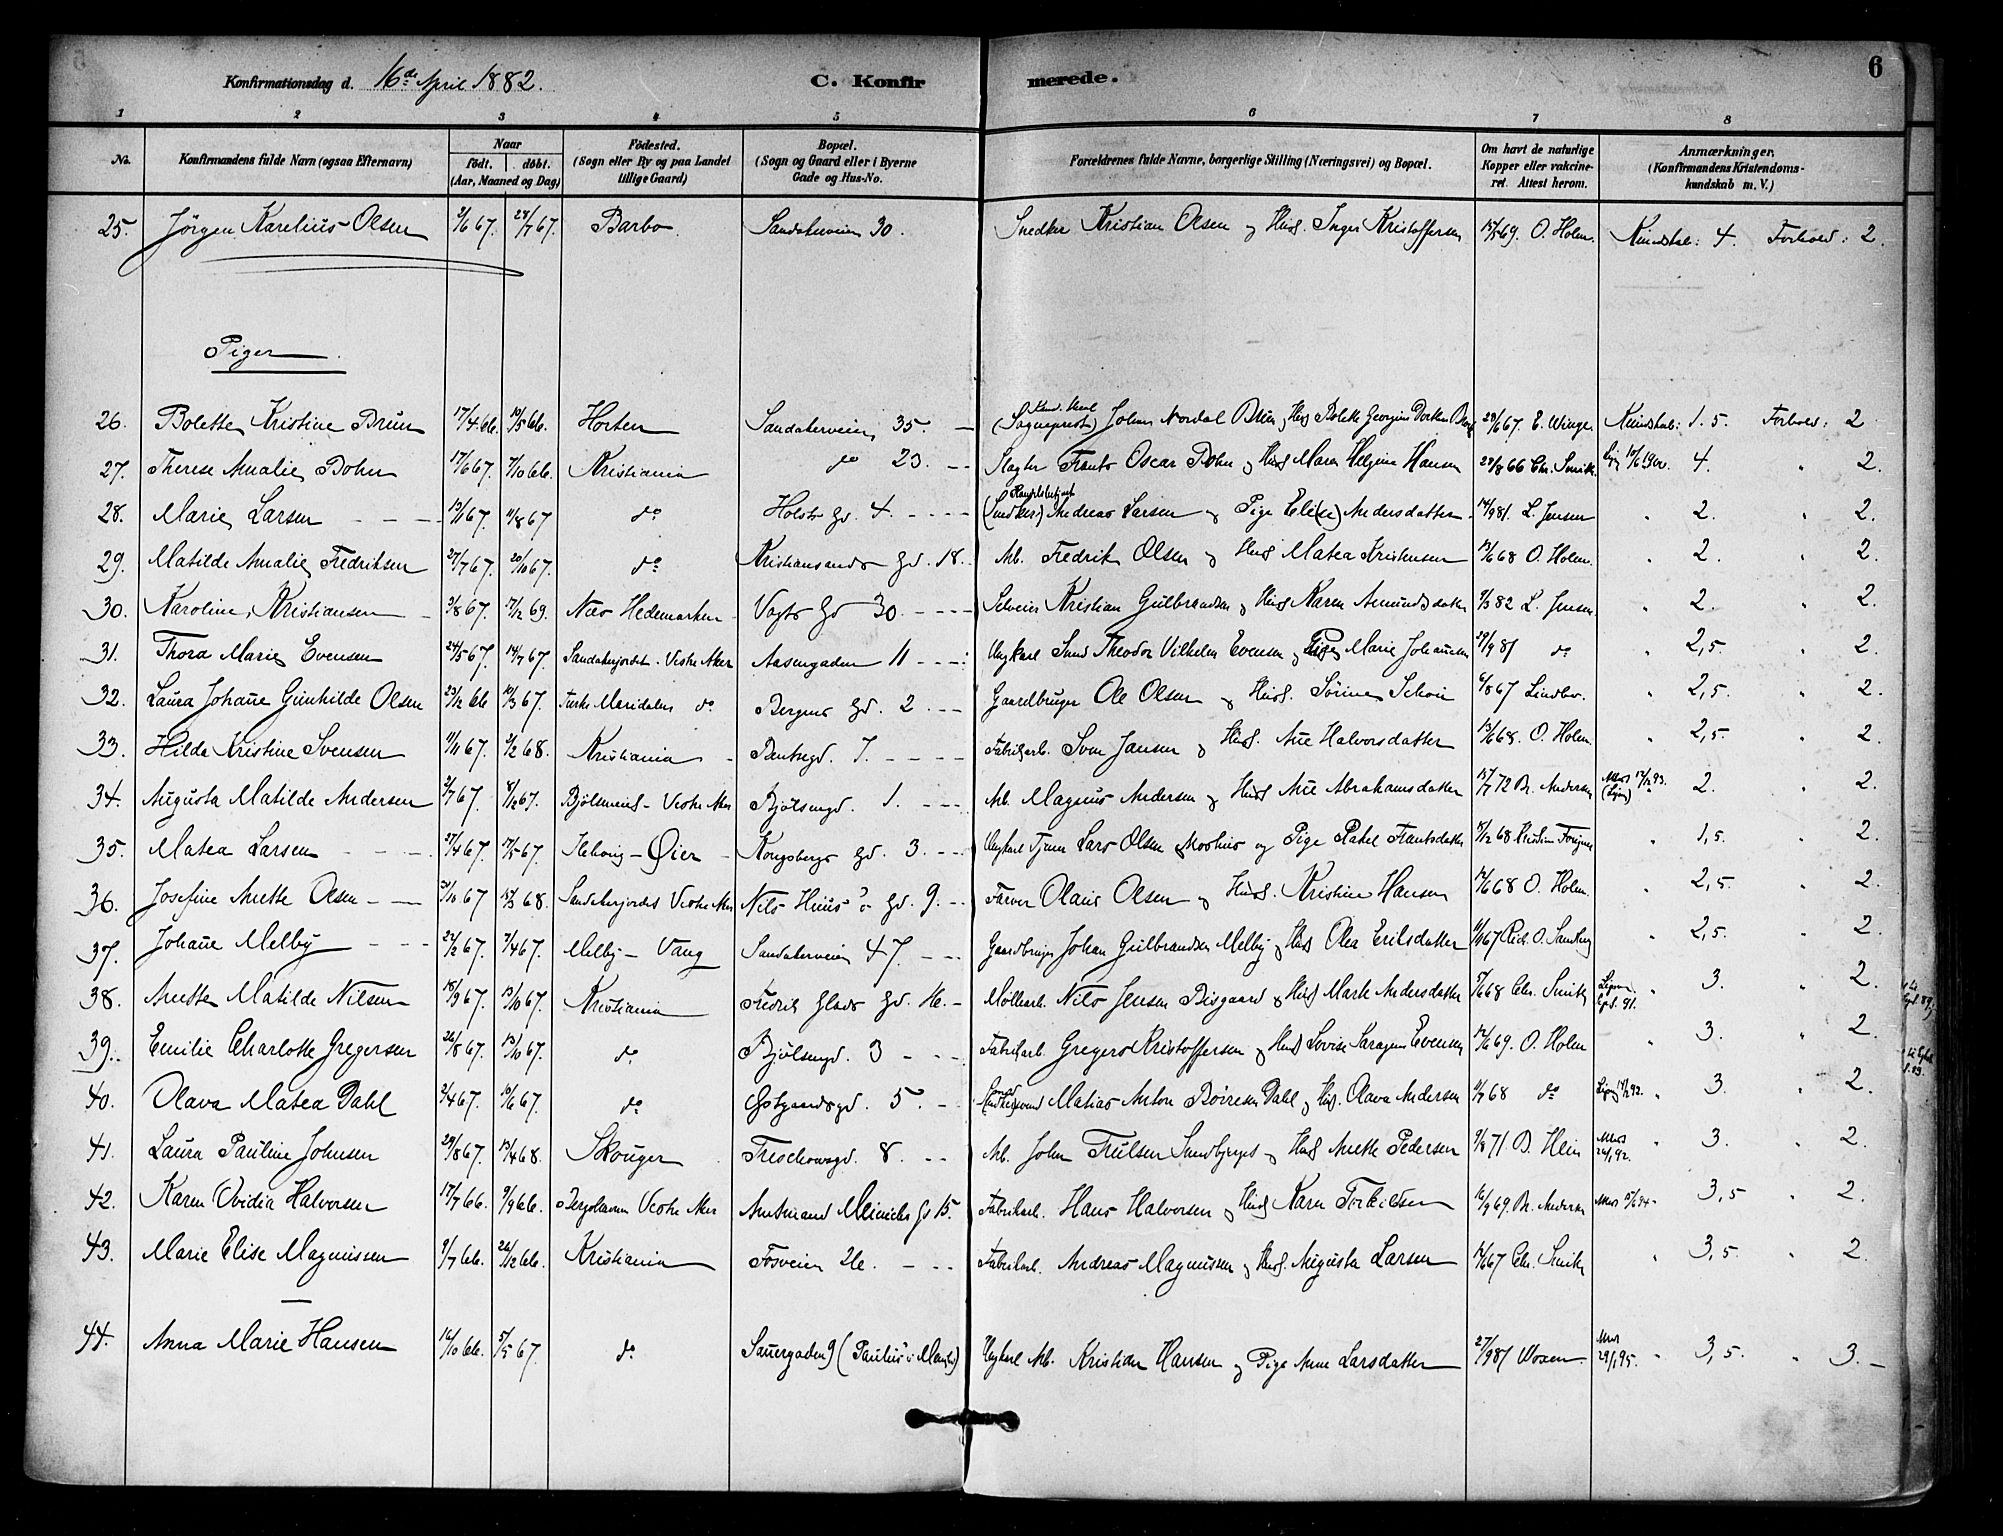 6
Konfirmationsdag d. 16de April 1882. C. Konfir merede.
1 2 3 4 5 6 7 8
No. Konfirmandens fulde Navn (ogsaa Efternavn) Naar födt. döbt. (Aar, Maaned og Dag) Födested. (Sogn eller By og paa Landet tillige Gaard) Bopæl. (Sogn og Gaard eller i Byerne Gade og Hus-No. Forældrenes fulde Navne, borgerlige Stilling (Næringsvei) og Bopæl. Om havt de naturlige Kopper eller vakcineret. Attest herom. Anmærkninger, (Konfirmandens Kristendomskundskab m. V.)
25. Jörgen Karelius Olsen 2/6 67. 28/7 67. Barbo. Sandakerveien 30. Snedker Kristian Olsen og Hust. Inger Kristoffersen 15/5 69. O. Holm. Kundskab: 4. Forhold: 2.
Piger
26. Bolette Kristine Bruun 17/4 66. 10/5 66. Horten Sandakerveien 35. (Sogneprest) Johan Nordal Bruun, Hust Bolette Georgine 29/6 67. E. Winge. Kundskab: 1.5. Forhold: 2
27. Therese Amalie Bohn 17/6 67. 7/10 66. Kristiania do 23. Slagter Frants Oscar Bohn og Hust Maren Helgine Hansen 27/8 66 Chr. Smith. 10/6 1900. 4. " 2.
28. Marie Larsen 13/1 67. 11/8 67 do Holsts Gd. 4. (Snedker) Andreas Larsen og Pige Eli(se) Andersdatter 14/9 81. L. Jensen " 2. " 2.
29. Matilde Amalie Fredriksen 27/7 67. 20/10 67. do. Kristiansands Gd. 18. Arb. Fredrik Olsen og Hust Matea Kristensen 13/6 68 O. Holm. " 2. " 2.
30. Karoline Kristiansen 3/8 67. 7/12 69. Næs Hedemarken Vogts Gd 30. Selveier Kristian Gulbrandsen og Hust Karen Amundsdatter 7/3 82 L. Jensen. " 2. " 2.
31. Thora Marie Evensen 24/5 67. 14/7 67. Sandakerjordet Vestre Aker Aasengaden 11 Ungkarl Smed Theodor Vilhelm Evensen og Pige Marie Johansen 29/9 81 do " 2,5. " 2.
32. Laura Johanne Gunhilde Olsen 23/12 66 10/3 67. Maridalen do Bergens Gd. 2. Gaardbruger Ole Olsen og Hust. Sörine Schou 6/8 67 " 2,5. " 2.
33. Hilda Kristine Svensen 11/11 67. 2/2 68. Kristiania Bentsegd. 7. Fabrikarb. Sven Jansen og Hust. Ane Halvorsdatter 13/6 68. O. Holm. " 2,5. " 2.
34. Augusta Matilde Andersen 2/7 67. 8/12 67. Bjölseneie Vestre Aker Bjölsengd. 1. Arb. Magnus Andersen og Hust Ane Abrahamsdatter 15/7 72 Br. Andersen 2. " 2.
35. Matea Larsen 27/4 67. 17/5 67. Öier Kongsbergs Gd. 3. Ungkarl Lars Olsen og Pige Frantsdatter /12 68 " 1,5. " 2.
36. Josefine Anette Olsen 30/10 67 15/3 68. Sandakerjordet Vestre Aker Nils Huus's Gd. 9. Farver Olaus Olsen og Hust. Kristine Hansen 14/6 68 O. Holm. " 2,5. " 2.
37. Johanne Melby 22/2 67. 7/4 67. Melby - Vang Sandakerveien 47. Gaardbruger Johan Gulbrandsen Melby, Hust Olea Eriksdatter 11/11 67 Rich. O. " 2,5. " 2.
38. Anette Matilde Nilsen 18/9 67. 13/10 67. Kristiania Fredrik Glads Gd. 16. Möllearb. Nils Jensen Bisgaard og Hust Marte Andersdatter 5/6 68 Chr. Smith 91. " 3. " 2.
39. Emilie Charlotte Gregersen 26/8 67. 13/10 67. do. Bjölsengd. 3 Fabrikarb. Gregers Kristoffersen og Hust Lovise Evensen 12/6 69. O. Holm " 3. " 2.
40. Olava Matea Dahl 2/4 67. 10/6 67. do Östgaardsgd. 5. Matias Anton Börresen Dahl og Hust. Olava Andersen 11/7 68 do 92. " 3. " 2.
41. Laura Pauline Johnsen 29/8 67. 13/4 68. Skouger Treschowsgd. 8. Arb. John Trulsen og Hust Anette Pedersen 9/8 71. B. Hein 26/1 92. " 3. " 2.
42. Karen Ovidia Halvorsen 17/7 66. 9/9 66. Vestre Aker Amtmand Meinichs Gd 15. Fabrikarb. Hans Halvorsen og Hust Karen Torkildsen 16/9 69. Br. Andersen 15/6 94 3,5 " 2.
43. Marie Elise Magnussen 9/7 66. 26/12 66. Kristiania Fosveien 26. Fabrikarb. Andreas Magnussen og Hust. Augusta Larsen 14/6 67 Chr. Smith " 3,5. " 2.
44. Anna Marie Hansen 16/10 66. 5/5 67. do Sannergaden 9 (Paulus's Menighed) Ungkarl Arb. Kristian Hansen og Pige Anne Larsdatter 27/9 81 Woxen 29/1 95. " 3,5. " 3.